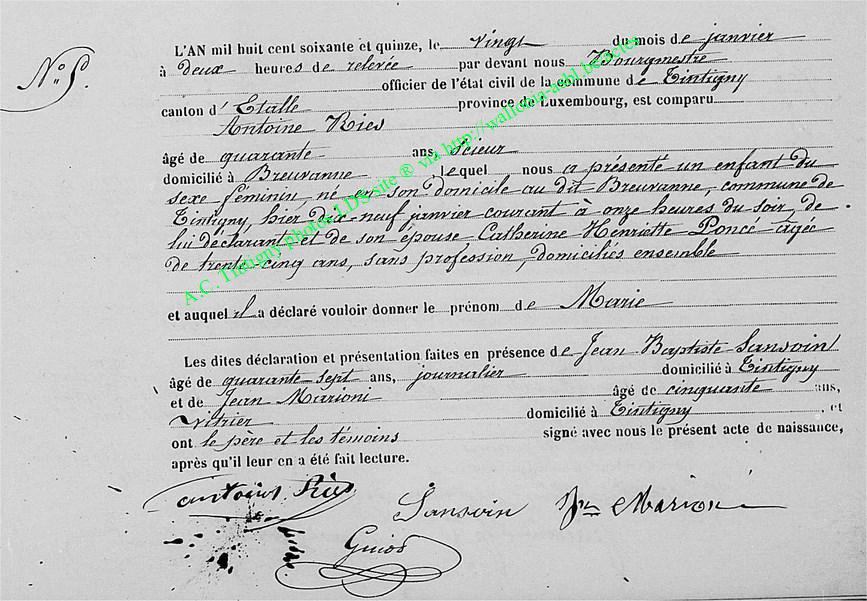 N° 5.
L'AN mil huit cent soixante et quinze, le vingt du mois de janvier
à deux heures de relevée par devant nous Bourgmestre
officier de l'état civil de la commune de Tintigny
canton d'Etalle province de Luxembourg, est comparu
Antoine Ries
âgé de quarante ans, Scieur
domicilié à Breuvanne, lequel nous a présenté un enfant du
sexe féminin, né en son domicile au dit Breuvanne, commune de
Tintigny, hier dix-neuf janvier courant à onze heures du soir, de
lui déclarant et de son épouse Catherine Henriette Ponce âgée
de trente cinq ans, sans profession, domiciliés ensemble
et auquel il a déclaré vouloir donner le prénom de Marie
Les dites déclaration et présentation faites en présence de Jean Baptiste Sansoin
âgé de quarante sept ans, journalier domicilié à Tintigny
et de Jean Marioni âgé de cinquante ans,
Vitrier domicilié à Tintigny et
ont le père et les témoins signé avec nous le présent acte de naissance,
après qu'il leur en a été fait lecture.
antoine Ries Sansoin Jn Marioni
A.C. Tintigny photos LDS site ® via http://wallonia-asbl.be/actes